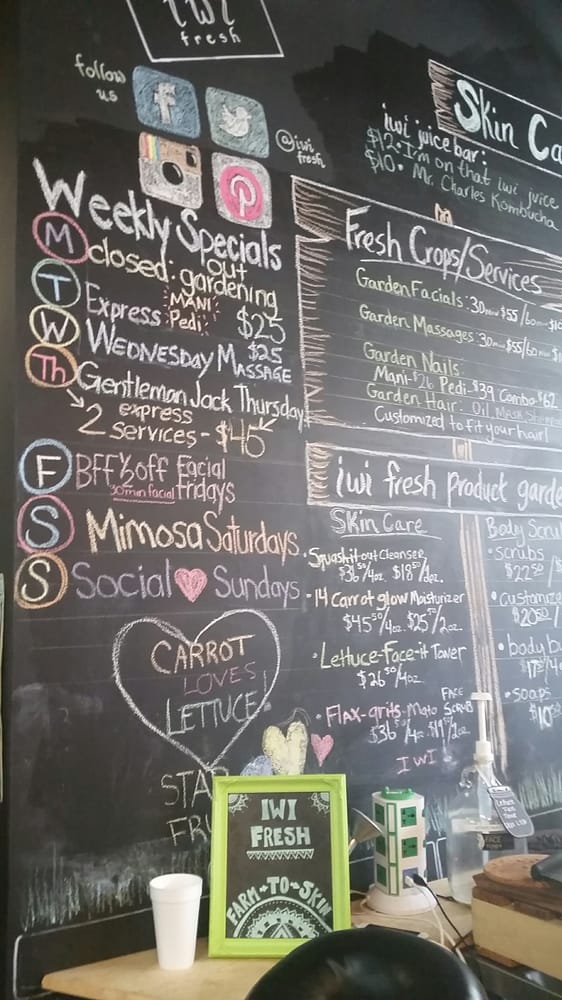 iwi
fresh
follow
us
@iwi
fresh
Weekly Specials
M closed: out
gardening
T Express MANI
Pedi $25
W WEDNESDAY MASSAGE $25
Th Gentleman Jack Thursday
2 express
services - $45
F BFF 1/2 off Facial
30min facial Fridays
S Mimosa Saturdays
S Social Sundays
CARROT
LOVES
LETTUCE!
Skin Ca
iwi juice bar:
$12 • I'm on that iwi juice
$10 • Mr. Charles Kombucha
Fresh Crops/Services
Garden Facials: 30min $55/60min
Garden Massages: 30min $55/60min
Garden Nails:
Mani-$26 Pedi-$39 Combo-$62
Garden Hair: Oil
Customized to fit your hair!
iwi fresh product garde
Skin Care
• Squash it out Cleanser
$36 50/4oz. $18 50/2oz.
• 14 Carrot glow Moisturizer
$45 50/4oz. $25 50/2oz.
• Lettuce-Face-it Toner
$26 50/4oz
• Flax-grits-Mato FACE SCRUB
$36 50/4oz $19 50/2oz
IWI
Body Scru
• scrubs
$22 50/
• customize
$20 50/
• body bu
• soaps
$10 50
IWI
FRESH
FARM-TO-SKIN